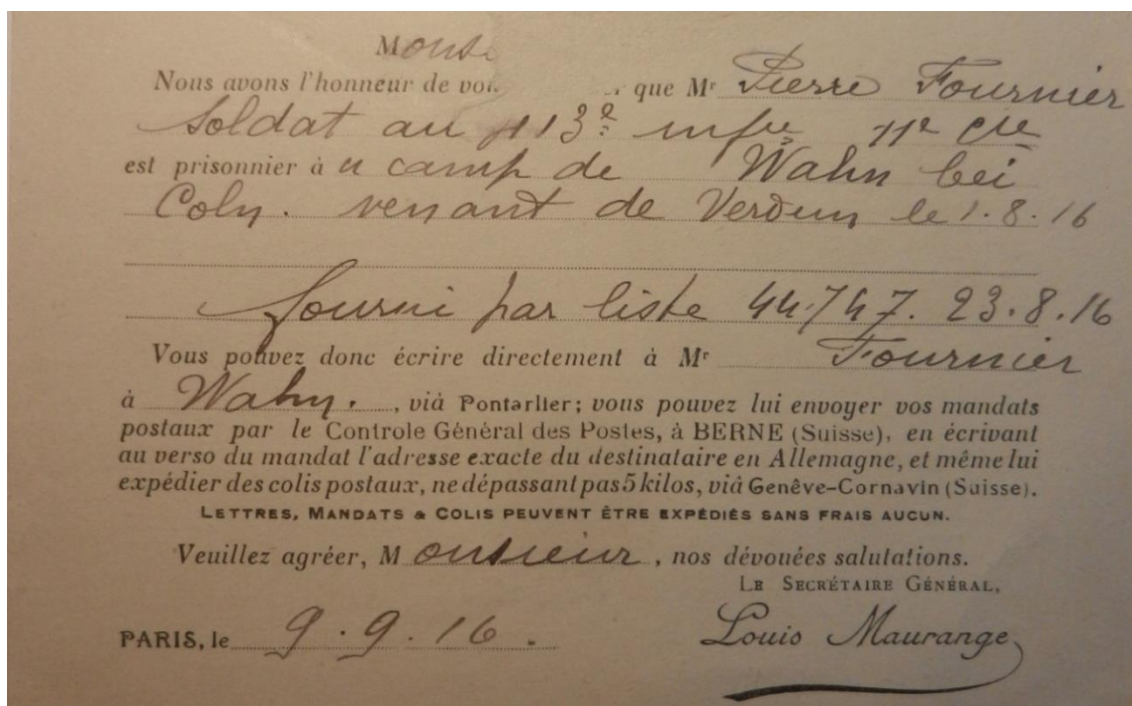 Monsi
Nous avons l'honneur de vou que Mr Pierre Fournier
soldat au 113e infie 11e Cie
est prisonnier à u camp de Wahn bei
Coln. venant de Verdun le 1.8.16
fourni par liste 44747. 23.8.16
Vous pouvez donc écrire directement à Mr Fournier
à Wahn. , viâ Pontarlier; vous pouvez lui envoyer vos mandats
postaux par le Controle Général des Postes, à BERNE (Suisse), en écrivant
au verso du mandat l'adresse exacte du destinataire en Allemagne, et même lui
expédier des colis postaux, ne dépassant pas 5 kilos, viâ Genêve-Cornavin (Suisse).
LETTRES, MANDATS & COLIS PEUVENT ÊTRE EXPÉDIÉS SANS FRAIS AUCUN.
Veuillez agréer, Monsieur, nos dévouées salutations.
LE SECRÉTAIRE GÉNÉRAL,
PARIS, le 9.9.16. Louis Maurange